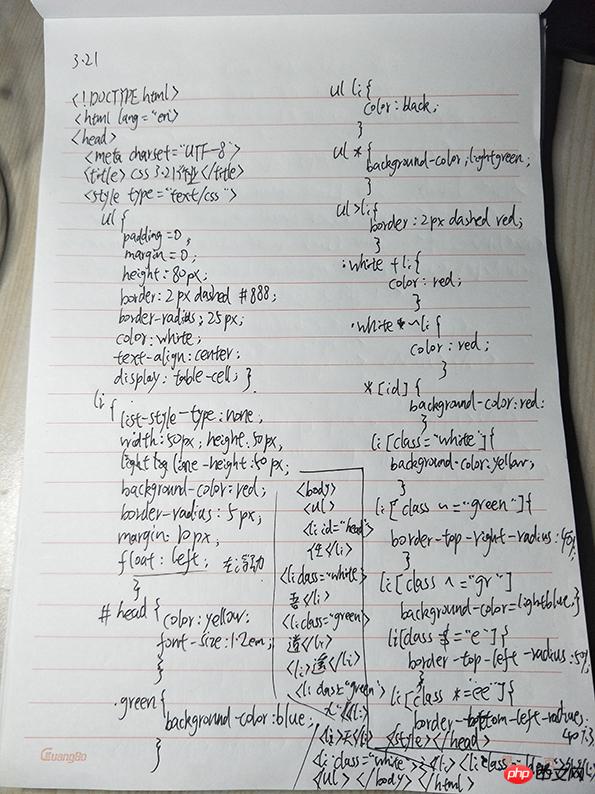 3.21
<!DOCTYPE html>
<html lang="en>
<head>
<meta charset="UTF-8">
<title> css 3.21作业</title>
<style type="text/css">
ul {
padding=0;
margin=0;
height:80px;
border:2px dashed #888;
border-radius;25px;
color:white;
text-align:center;
display:table-cell;}
li {
list-style-type:none;
width:50px; height:50px;
line-height:50px;
background-color:red;
border-radius:5px;
margin:10px;
float:left;
}
#head {color:yellow;
font-size:1.2em;
}
}
.green{
background-color:blue;
}
ul li {
color:black;
}
ul * {
background-color;lightgreen;
}
ul>li{
border:2px dashed red;
}
.white +li{
color:red;
}
.white ~li{
color:red;
}
*[id] {
background-color:red;
}
li[class="white"]{
background-color:yellow;
}
li[class ~="green"]{
border-top-right-radius:
}
li[class ^="gr"]
background-color=lightblue;}
li[class $="e"]{
border-top-left-radius:50%;
}
li[class *="ee"]{
border-bottom-left-radius;
40%;}
<style></head>
<body>
<ul>
<li id="head">
任</li>
<li class="white
吾</li>
<li class="green
逍</li>
<li>遥</li>
<li class="green">
</li>
<li></li>
<li class="white"></li> <li class=
<ul> </body> </html>
GuangBo
php中文网